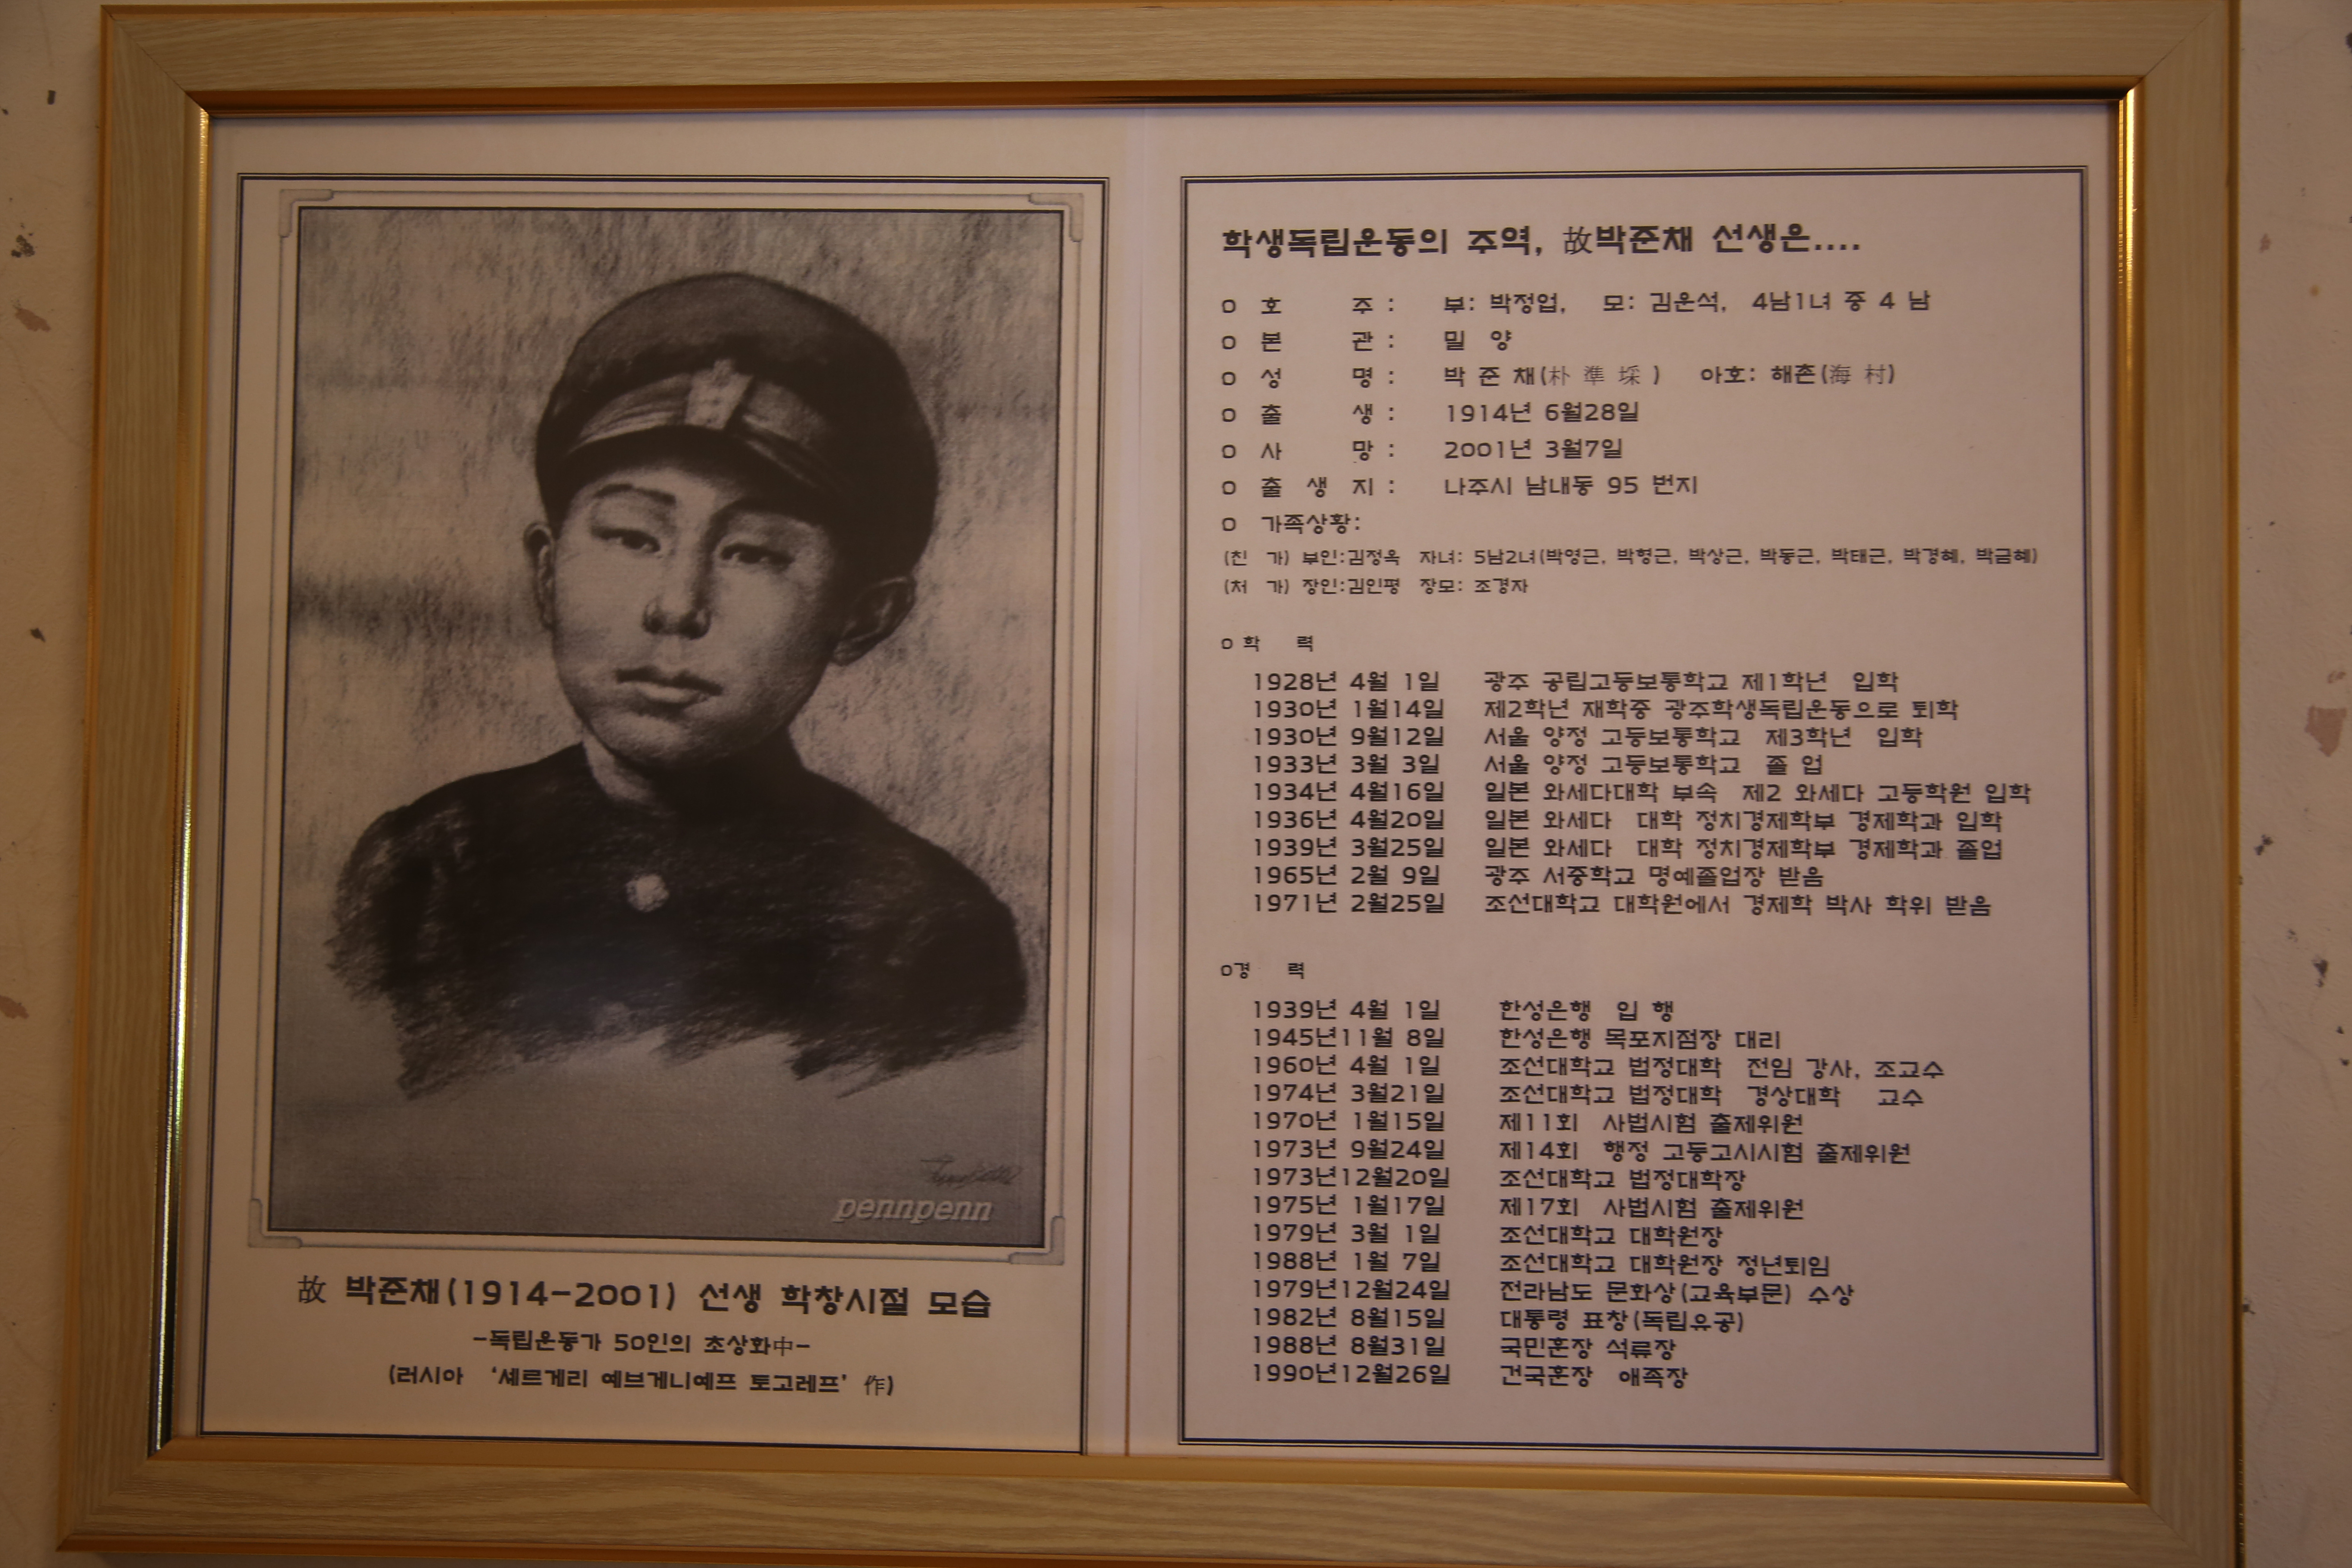 pennpenn
故 박준채(1914-2001) 선생 학창시절 모습
-독립운동가 50인의 초상화中-
(러시아 '세르게리 예브게니예프 토고레프' 作)
학생독립운동의 주역, 故박준채 선생은....
ㅇ 호 주 : 부: 박정업, 모: 김운석, 4남1녀 중 4 남
ㅇ 본 관 : 밀 양
ㅇ 성 명 : 박 준 채(朴 準 埰 ) 아호: 해촌(海 村)
ㅇ 출 생 : 1914년 6월28일
ㅇ 사 망 : 2001년 3월7일
ㅇ 출 생 지 : 나주시 남내동 95 번지
ㅇ 가족상황:
(친 가) 부인:김정옥 자녀: 5남2녀(박영근, 박형근, 박상근, 박동근, 박태근, 박경혜, 박금혜)
(처 가) 장인:김인평 장모: 조경자
ㅇ 학 력
1928년 4월 1일 광주 공립고등보통학교 제1학년 입학
1930년 1월14일 제2학년 재학중 광주학생독립운동으로 퇴학
1930년 9월12일 서울 양정 고등보통학교 제3학년 입학
1933년 3월 3일 서울 양정 고등보통학교 졸 업
1934년 4월16일 일본 와세다대학 부속 제2 와세다 고등학원 입학
1936년 4월20일 일본 와세다 대학 정치경제학부 경제학과 입학
1939년 3월25일 일본 와세다 대학 정치경제학부 경제학과 졸업
1965년 2월 9일 광주 서중학교 명예졸업장 받음
1971년 2월25일 조선대학교 대학원에서 경제학 박사 학위 받음
ㅇ경 력
1939년 4월 1일 한성은행 입 행
1945년11월 8일 한성은행 목포지점장 대리
1960년 4월 1일 조선대학교 법정대학 전임 강사, 조교수
1974년 3월21일 조선대학교 법정대학 경상대학 교수
1970년 1월15일 제11회 사법시험 출제위원
1973년 9월24일 제14회 행정 고등고시시험 출제위원
1973년12월20일 조선대학교 법정대학장
1975년 1월17일 제17회 사법시험 출제위원
1979년 3월 1일 조선대학교 대학원장
1988년 1월 7일 조선대학교 대학원장 정년퇴임
1979년12월24일 전라남도 문화상(교육부문) 수상
1982년 8월15일 대통령 표창(독립유공)
1988년 8월31일 국민훈장 석류장
1990년12월26일 건국훈장 애족장